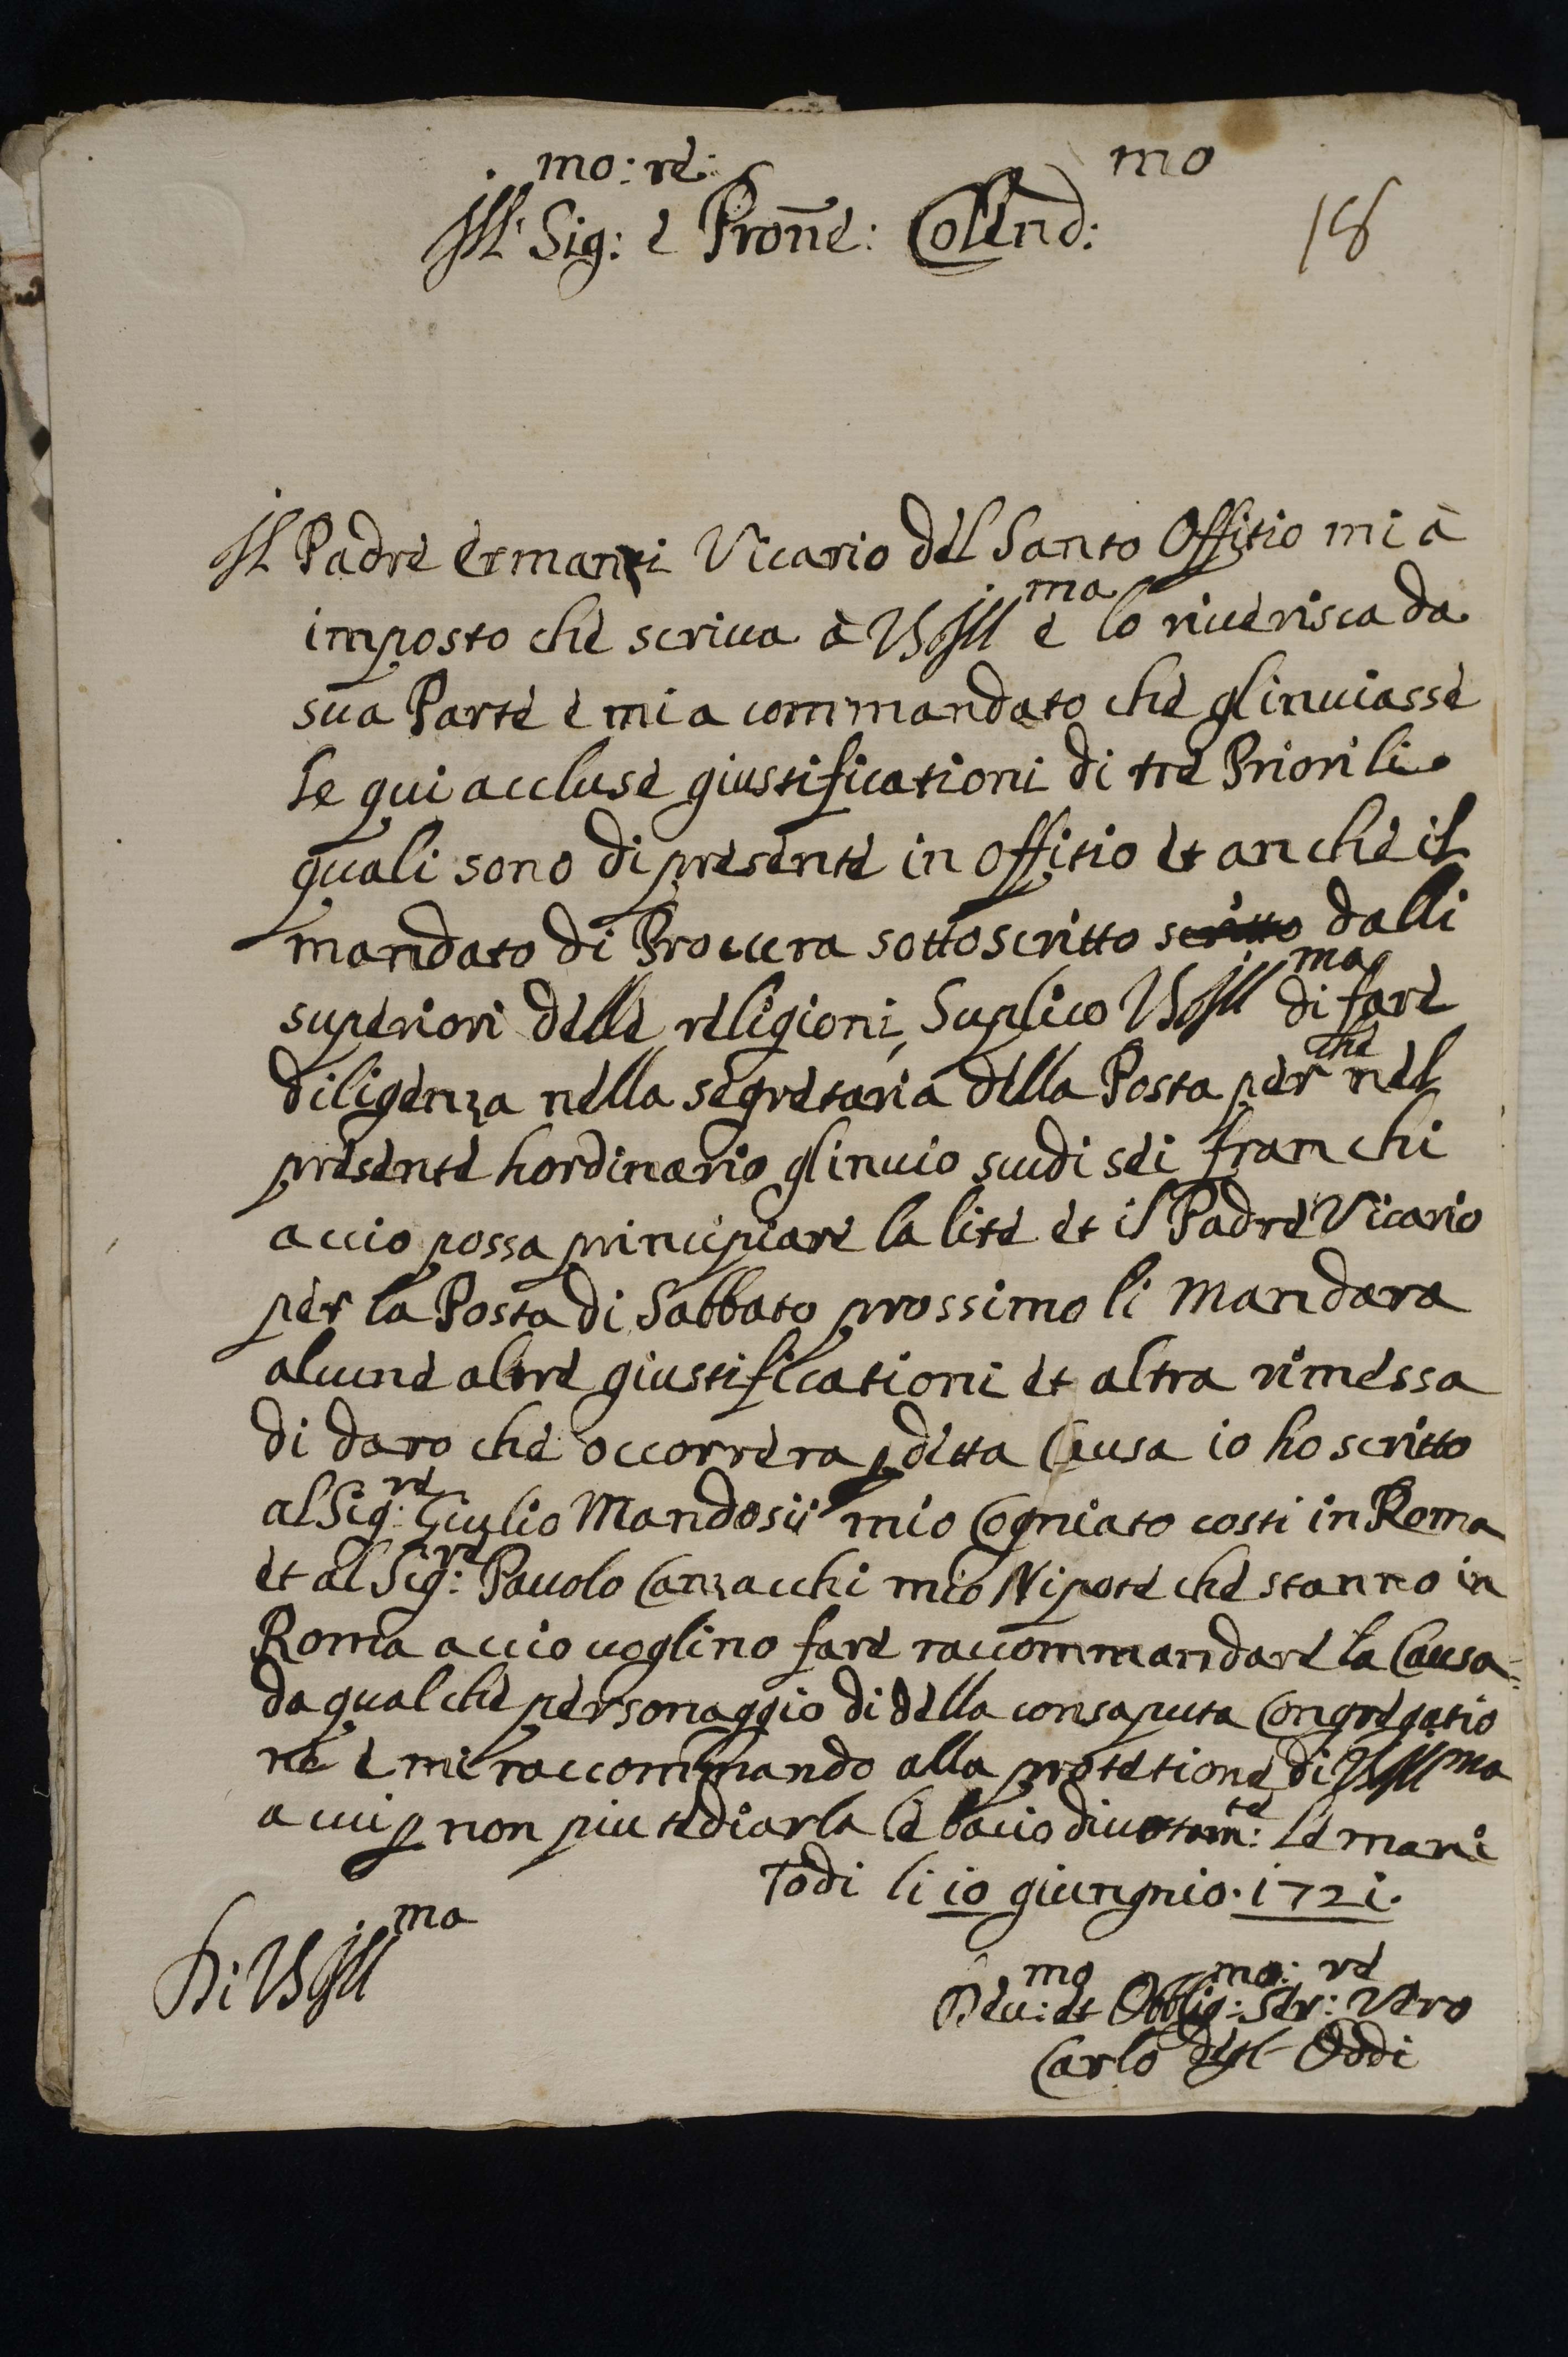 Ill:mo Sig:re e Pron̄e: Collend:mo
18
Il Padre Ermanni Vicario del Santo Offitio mi à
imposto che scriua à VS Illma e lo riuerisca da
sua Parte e mi a commandato che gl inuiasse
le qui accluse giustificationi di tre Priori li
quali sono di presente in offitio et anche il
mandato di Procura sottoscritto scritto dalli
superiori delle religioni, Suplico VS Illma di fare
diligenza nella segretaria della Posta per che nel
presente hordinario gl inuio scudi sei franchi
accio possa principiare la lite et il Padre Vicario
per la Posta di Sabbato prossimo li Mandara
alcune altre giustificationi et altra rimessa
di daro che occorrera p detta Causa io ho scritto
al Sig:re Giulio Mandosii mio Cogniato costi in Roma
et al Sig:re Pauolo Canzacchi mio Nipote che stanno in
Roma accio uoglino fare raccommandare la Causa
da qualche personaggio di della consaputa Congregatio
ne e mi raccommando alla protetione di VS Illma
a cui p non piu tediarla le bacio diuotam:te le mani
Todi li io giungnio. i72i.
Di VS Illma
Deu:mo et Obblig:mo Ser:re Vero
Carlo degl Oddi